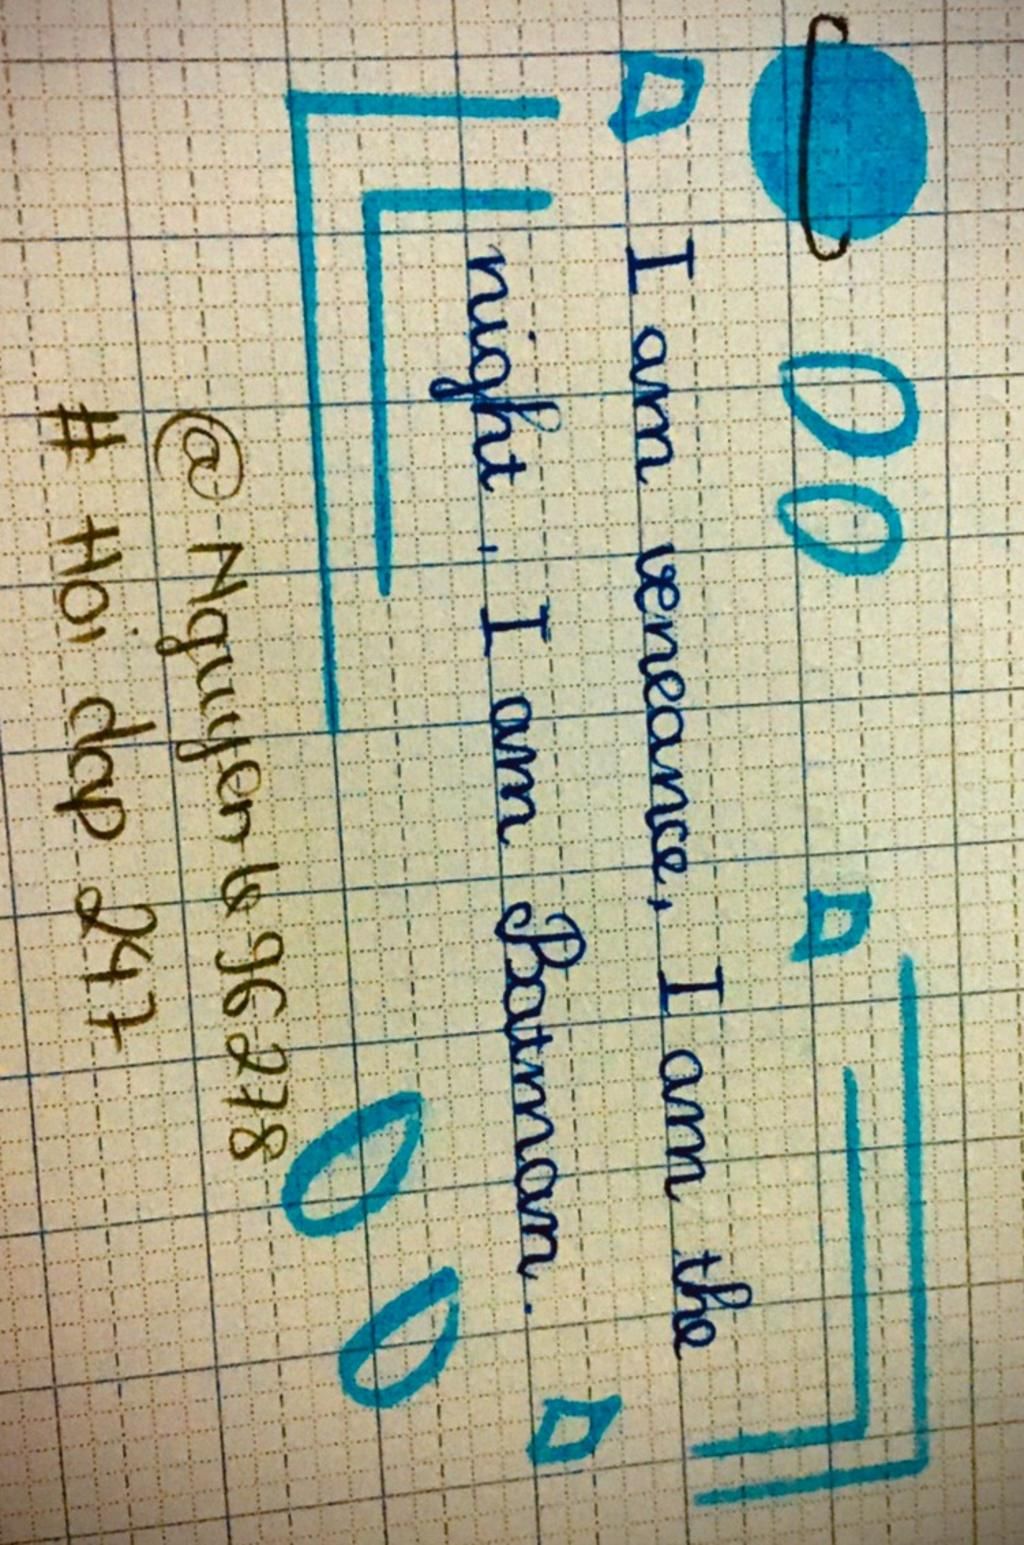 I am veneance, I am the
night. I am Batman.
@ Nguyen le 96278
# Hoi dap 247